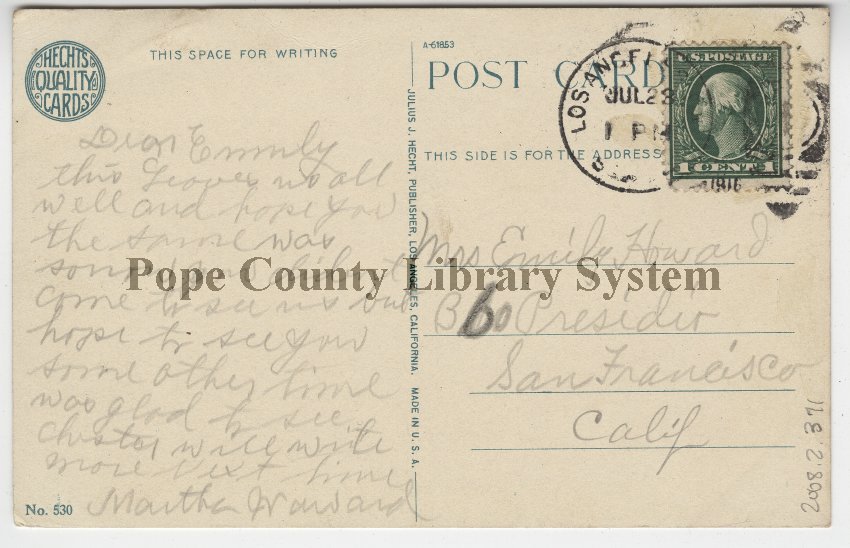 HECHTS
QUALITY
CARDS
THIS SPACE FOR WRITING
A-61853
POST CARD
LOS ANGEL
JUL 28
1 PM
1916
U.S. POSTAGE
1 CENT 1
THIS SIDE IS FOR THE ADDRESS
JULIUS J. HECHT, PUBLISHER, LOS ANGELES, CALIFORNIA. MADE IN U. S. A.
Dear Emmly
this leaves us all
well and hope you
the same was
sorry you didn't
come to see us but
hope to see you
some other time
was glad to see
Chester will write
more next time
Martha
Mrs Emily Howard
B 60 Presidio
San Francisco
Calif
Pope County Library System
No. 530
2008.2.371